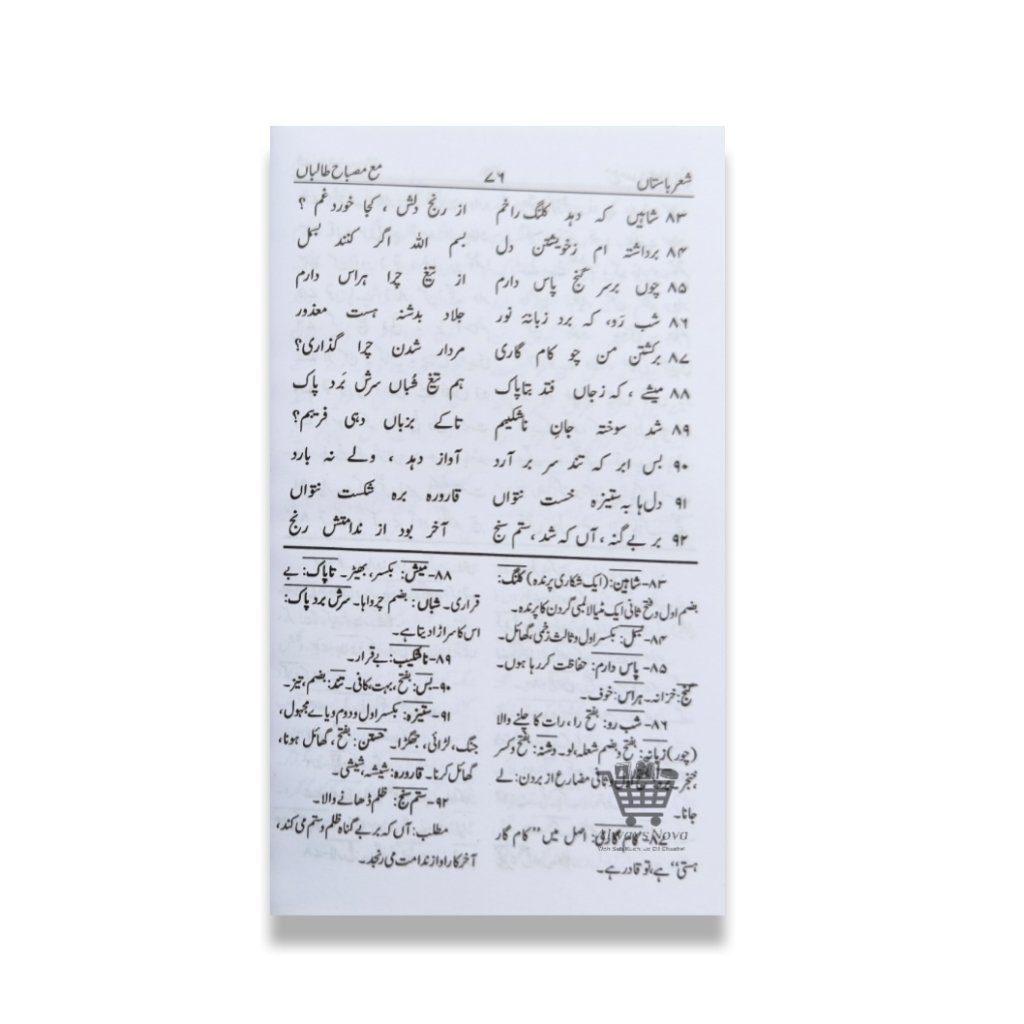 شعر باستاں ۷۶ مع مصباح طالباں
۸۳ شاہیں کہ دہد کلنگ را خم از رنج دلش ، کجا خورد غم ؟
۸۴ برداشتہ ام زخویشتن دل بسم اللہ اگر کنند بسمل
۸۵ چوں برسر گنج پاس دارم از تیغ چرا ہراس دارم
۸۶ شب رَو، کہ برد زبانۂ نور جلاد بدشنہ ہست معذور
۸۷ برکشتن من چو کام گاری مردار شدن چرا گذاری؟
۸۸ میشے ، کہ زجاں فتد بتاپاک ہم تیغ شُباں سرش بَرد پاک
۸۹ شد سوختہ جانِ ناشکیم تاکے بزباں دہی فریبم؟
۹۰ بس ابر کہ تند سر بر آرد آواز دہد ، ولے نہ بارد
۹۱ دل ہا بہ ستیزہ خست نتواں قارورہ برہ شکست نتواں
۹۲ بر بے گنہ ، آں کہ شد ، ستم سنج آخر بود از ندامتش رنج
۸۳- شاہین: (ایک شکاری پرندہ) کلنگ:
بضم اول وفتح ثانی ایک مٹیالا لمبی گردن کا پرندہ۔
۸۴- بسمل: بکسر اول وثالث زخمی، گھائل۔
۸۵- پاس دارم: حفاظت کر رہا ہوں۔
گنج: خزانہ۔ ہراس: خوف۔
۸۶- شب رو: بفتح را، رات کا چلنے والا
(چور) زبانہ: بفتح وبضم شعلہ، لو۔ دشنہ: بفتح وکسر
،خنجر۔ ثانی مضارع از بردن: لے
جانا۔
۸۷- کام گاری: اصل میں ”کام گار
ہستی“ ہے، تو قادر ہے۔
۸۸- میش: بکسر، بھیڑ۔ تاپاک: بے
قراری۔ شباں: بضم چرواہا۔ سرش برد پاک:
اس کا سر اڑا دیتا ہے۔
۸۹- ناشکیب: بے قرار۔
۹۰- بس: بفتح، بہت، کافی۔ تند: بضم، تیز۔
۹۱- ستیزہ: بکسر اول ودوم ویاے مجہول،
جنگ، لڑائی، جھگڑا۔ خستن: بفتح، گھائل ہونا،
گھائل کرنا۔ قارورہ: شیشہ، شیشی۔
۹۲- ستم سنج: ظلم ڈھانے والا۔
مطلب: آں کہ بر بے گناہ ظلم وستم می کند،
آخر کار او از ندامت می رنجد۔
Always Nova